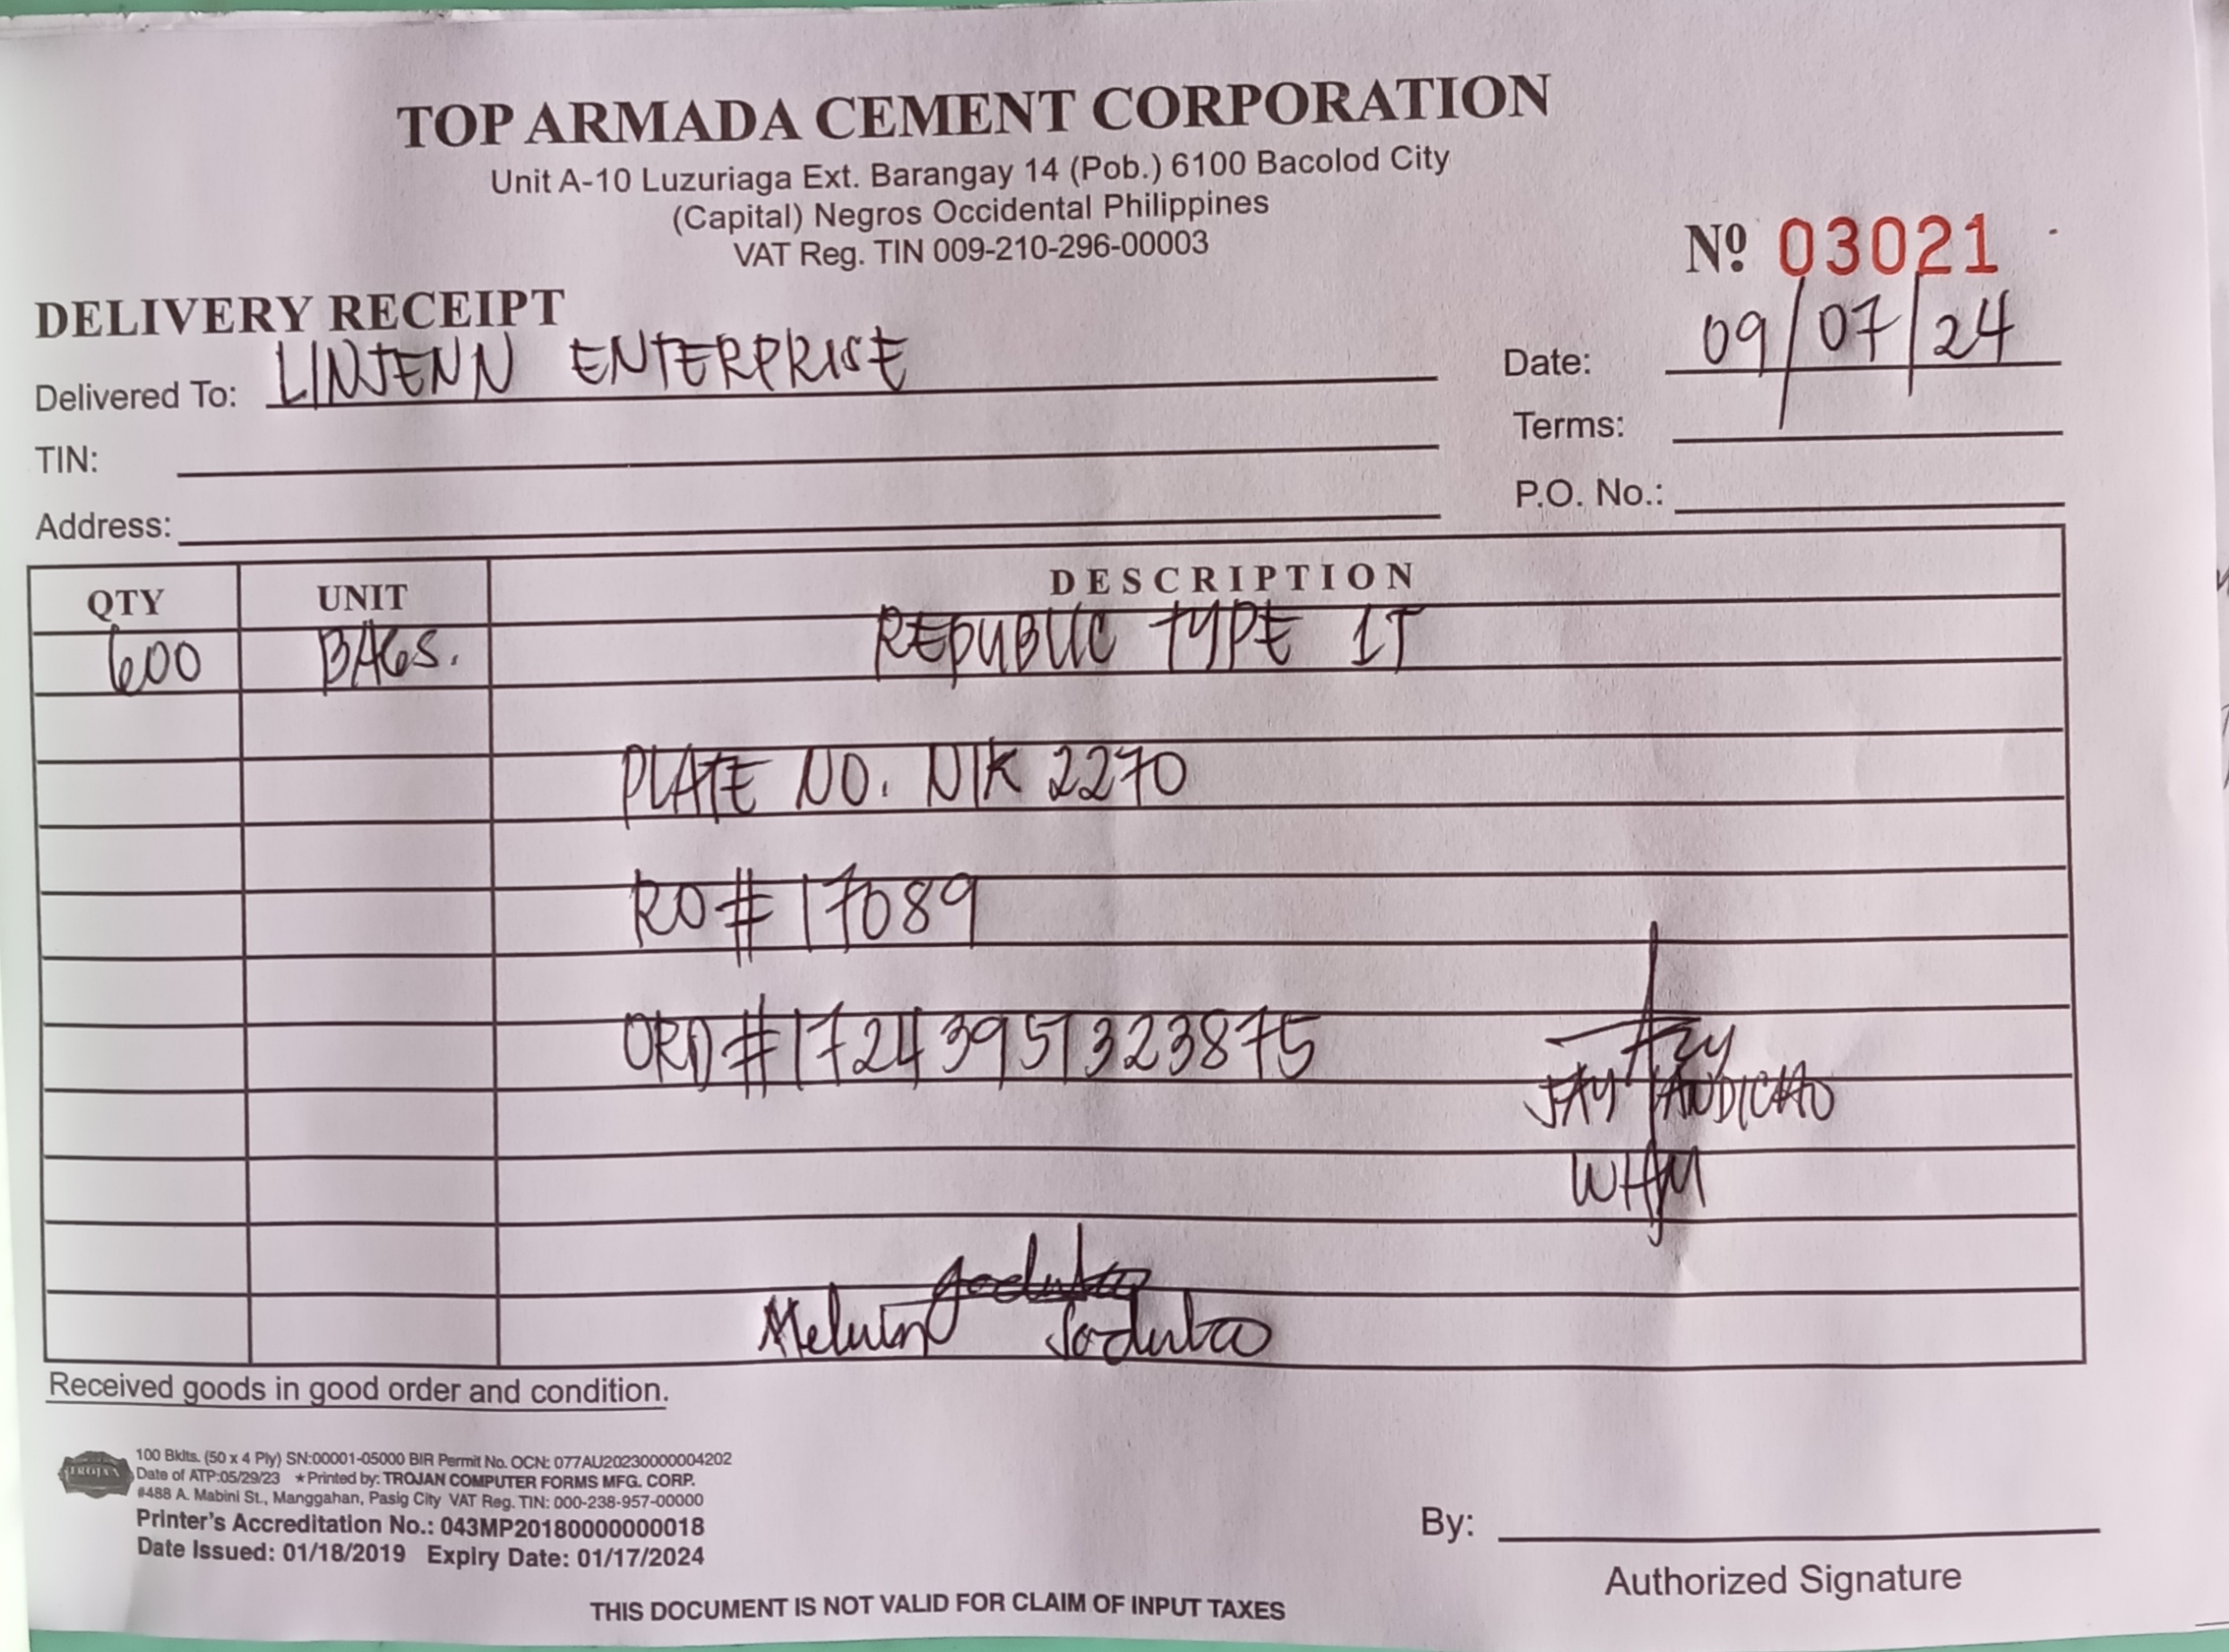 TOP ARMADA CEMENT CORPORATION
Unit A-10 Luzuriaga Ext. Barangay 14 (Pob.) 6100 Bacolod City
(Capital) Negros Occidental Philippines
VAT Reg. TIN 009-210-296-00003
Nº 03021
DELIVERY RECEIPT
Delivered To: LINJENN ENTERPRISE
Date: 09/07/24
TIN:
Terms:
Address:
P.O. No.:
QTY UNIT DESCRIPTION
600 BAGS. REPUBLIC TYPE 1T
PLATE NO. NIK 2270
RO# 17089
ORD#17243951323875
JAY ANDICHAO
WHM
Melvin Sodulao
Received goods in good order and condition.
TROJAN
100 Bklts. (50 x 4 Ply) SN:00001-05000 BIR Permit No. OCN: 077AU20230000004202
Date of ATP:05/29/23 ★Printed by: TROJAN COMPUTER FORMS MFG. CORP.
#488 A. Mabini St., Manggahan, Pasig City VAT Reg. TIN: 000-238-957-00000
Printer's Accreditation No.: 043MP20180000000018
Date Issued: 01/18/2019 Expiry Date: 01/17/2024
By:
Authorized Signature
THIS DOCUMENT IS NOT VALID FOR CLAIM OF INPUT TAXES